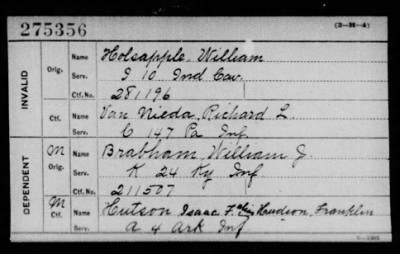 275356 (3-H-4)
INVALID
Orig.
Name Holsapple, William
Serv. I 10 Ind Cav.
Ctf. No. 281196
Ctf.
Name Van Nieda, Richard L.
Serv. C 147 Pa Inf
DEPENDENT
M
Orig.
Name Brabham, William J.
Serv. K 24 Ky Inf
Ctf. No. 211507
M
Ctf.
Name Hutson Isaac F. Hudson, Franklin
Serv. A 4 Ark Inf